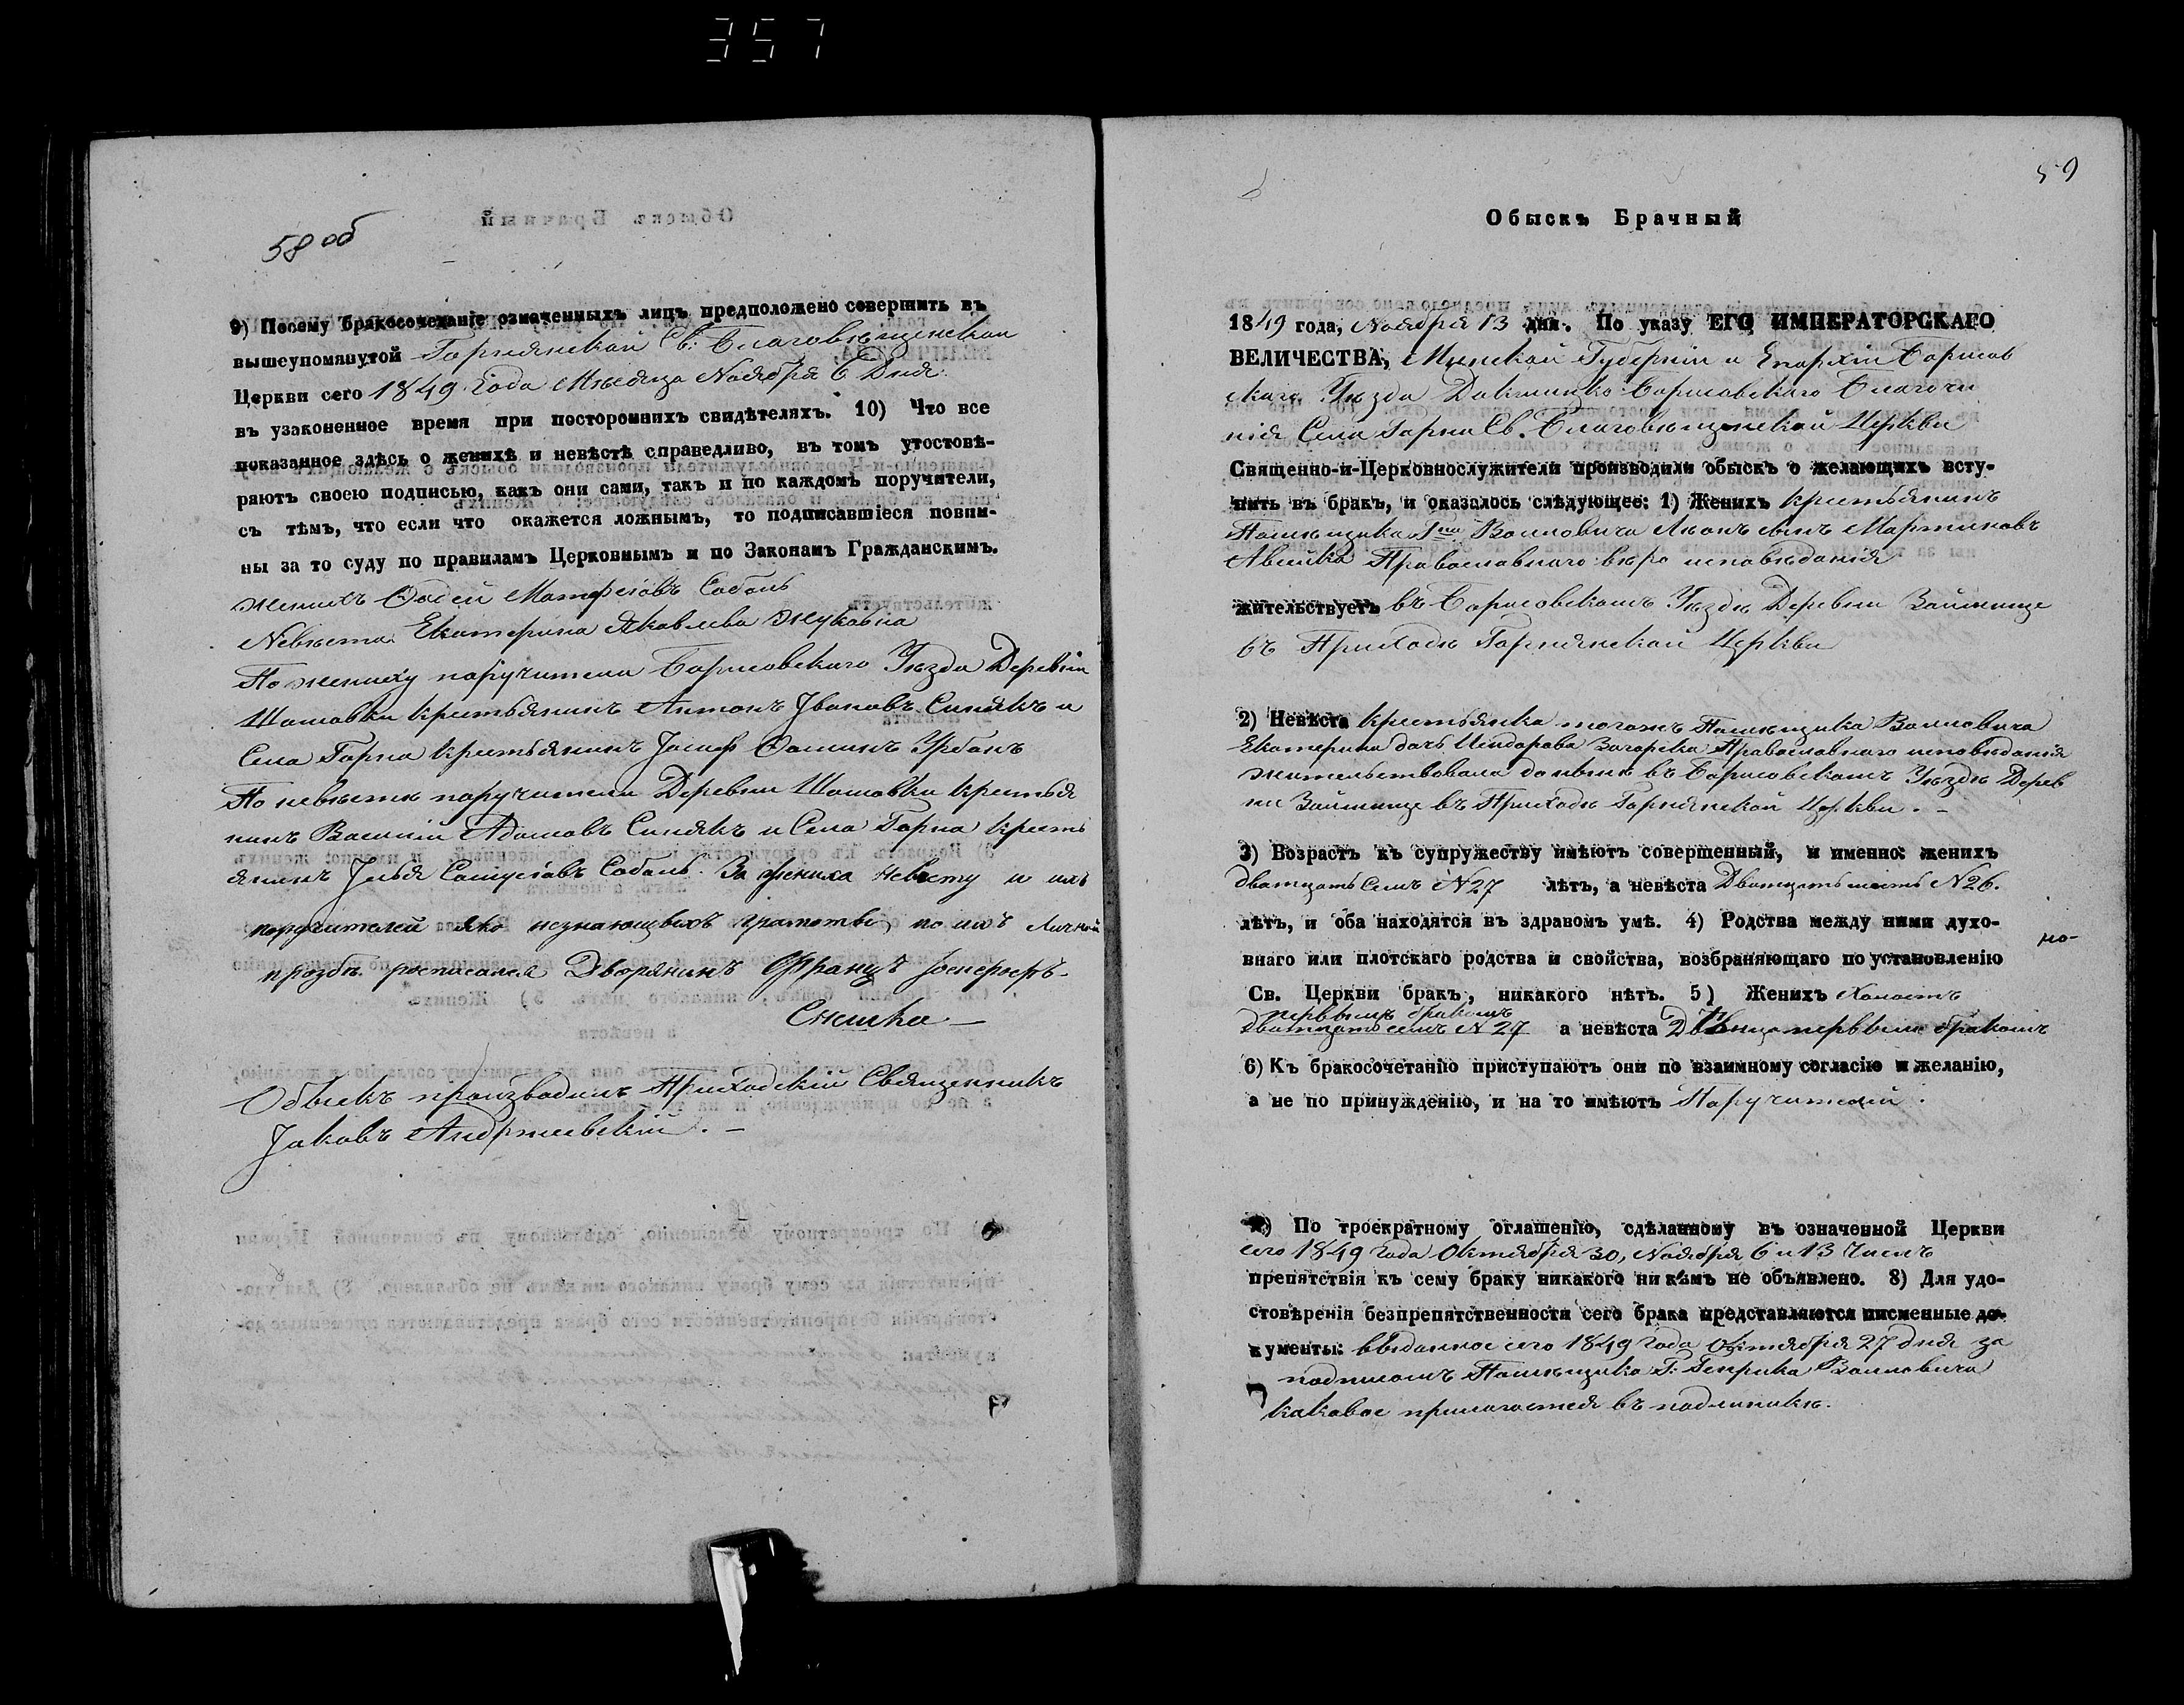 357
58 об
9) Посему бракосочетаніе означенныхъ лицъ предположено совершить въ
вышеупомянутой Горнянской Св: Благовѣщенской
Церкви сего 1849 Года Мѣсяца Ноября 6 Дня
въ узаконенное время при постороннихъ свидѣтеляхъ. 10) Что все
показанное здѣсь о женихѣ и невѣстѣ справедливо, въ томъ утостовѣ-
ряютъ своею подписью, какъ они сами, такъ и по каждомъ поручители,
съ тѣмъ, что если что окажется ложнымъ, то подписавшіеся повин-
ны за то суду по правиламъ Церковнымъ и по Законамъ Гражданскимъ.
женихъ Фадей Матфеіовъ Соболь
Невѣста Екатерина Яковлева Жуковна
По жениху поручители Борисовскаго Уѣзда Деревни
Шамовки крестьянинъ Антонъ Ивановъ Синякъ и
Села Горна крестьянинъ Іосиф Фоминъ Урбанъ
По невѣсте поручители Деревни Шамовки крестья
нинъ Василій Адамовъ Синякъ и Села Горна кресть
янинъ Илья Соболь. За жениха невесту и ихъ
поручителей яко незнающихъ грамоты, по ихъ личной
прозбѣ росписался Дворянинъ Францъ
Обыскъ производилъ Приходскій Священникъ
Іаковъ Андржиевскій. –
59
Обыскъ Брачный
1849 года, Ноября 13 дня. По указу ЕГО ИМПЕРАТОРСКАГО
ВЕЛИЧЕСТВА, Минской Губерніи и Епархіи Борисов
скаго Уѣзда Докшицко Борисовскаго Благочи
нія Села Горна Св. Благовѣщенской Церкви
Священно-и-Церковнослужители производили обыскъ о желающихъ всту-
пить въ брак, и оказалось слѣдующее: 1) Женихъ крестьянинъ
Помѣщика Воиловича сынъ Мартиновъ
Православнаго вѣро исповѣданія
жительствуетъ въ Борисовскомъ Уѣздѣ Деревни Займище
въ Приходѣ Горнянской Церкви
2) Невѣста крестьянка тогожъ Помѣщика Воиловича
Екатерина дочь Исидорова Загорска Православнаго исповѣданія
жительствовала донынѣ въ Борисовскомъ Уѣздѣ Дерев
ни Займище въ Приходѣ Горнянской Церкви. –
3) Возрастъ къ супружеству имѣютъ совершенный, и именно: женихъ
дватцать Семъ N27 лѣтъ, а невѣста Дватцать шесть N26.
лѣтъ, и оба находятся въ здравомъ умѣ. 4) Родства между ними духо-
внаго или плотскаго родства и свойства, возбраняющаго по установленію
Св. Церкви бракъ, никакого нѣтъ. 5) Женихъ Холостъ
первымъ бракомъ
дватцать семъ N 27 а невѣста Дѣвица первымъ бракомъ
6) Къ бракосочетанію приступаютъ они по взаимному согласію и желанію,
а не по принужденію, и на то имѣютъ Поручителей.
7) По троекратному оглашенію, сдѣланному въ означенной Церкви
сего 1849 Года Октября 30, Ноября 6 и 13 Числъ
препятствія къ сему браку никакого ни кѣмъ не объявлено. 8) Для удо-
стовѣренія безпрепятственности сего брака представляются писменные до-
кументы: выданное сего 1849 Года Октября 27 дня за
подписомъ Помѣщика Г: Генрика Воиловича
каковое прилагается въ подлиникѣ.